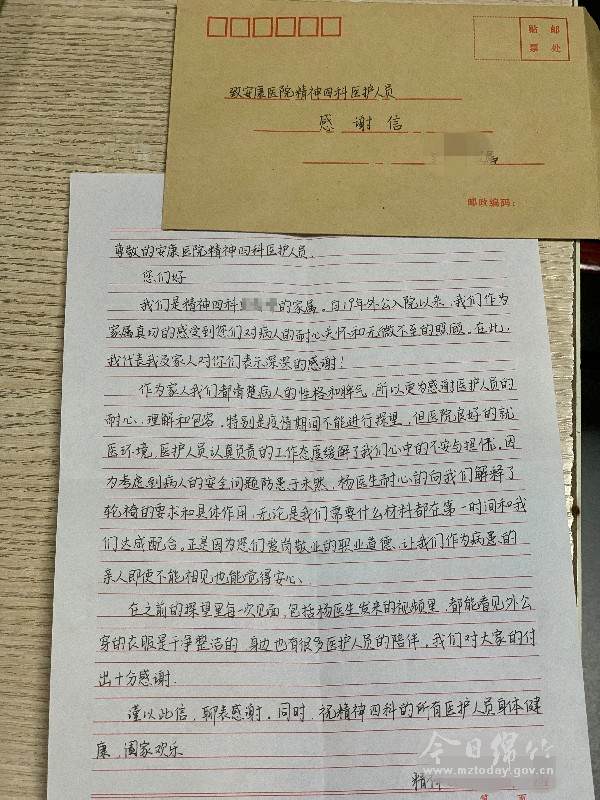 贴 邮
票 处
致安康医院精神四科医护人员
感 谢 信
邮政编码:
尊敬的安康医院精神四科医护人员.
您们好
我们是精神四科 的家属。自19年外公入院以来,我们作为
家属真切的感受到您们对病人的耐心关怀和无微不至的照顾。在此,
我代表我及家人对你们表示深深的感谢!
作为家人我们都清楚病人的性格和脾气,所以更为感谢医护人员的
耐心、理解和包容,特别是疫情期间不能进行探望,但医院良好的就
医环境,医护人员认真负责的工作态度缓解了我们心中的不安与担忧。因
为考虑到病人的安全问题防患于未然,杨医生耐心的向我们解释了
轮椅的要求和具体作用,无论是我们需要什么材料都在第一时间和我
们达成配合。正是因为您们爱岗敬业的职业道德,让我们作为病患的
亲人即使不能相见也能觉得安心、
在之前的探望里每一次见面,包括杨医生发来的视频里,都能看见外公
穿的衣服是干净整洁的,身边也有很多医护人员的陪伴,我们对大家的付
出十分感谢.
谨以此信,聊表感谢。同时,祝精神四科的所有医护人员身体健
康,阖家欢乐.
今日绵竹
www.mztoday.gov.cn
第 页